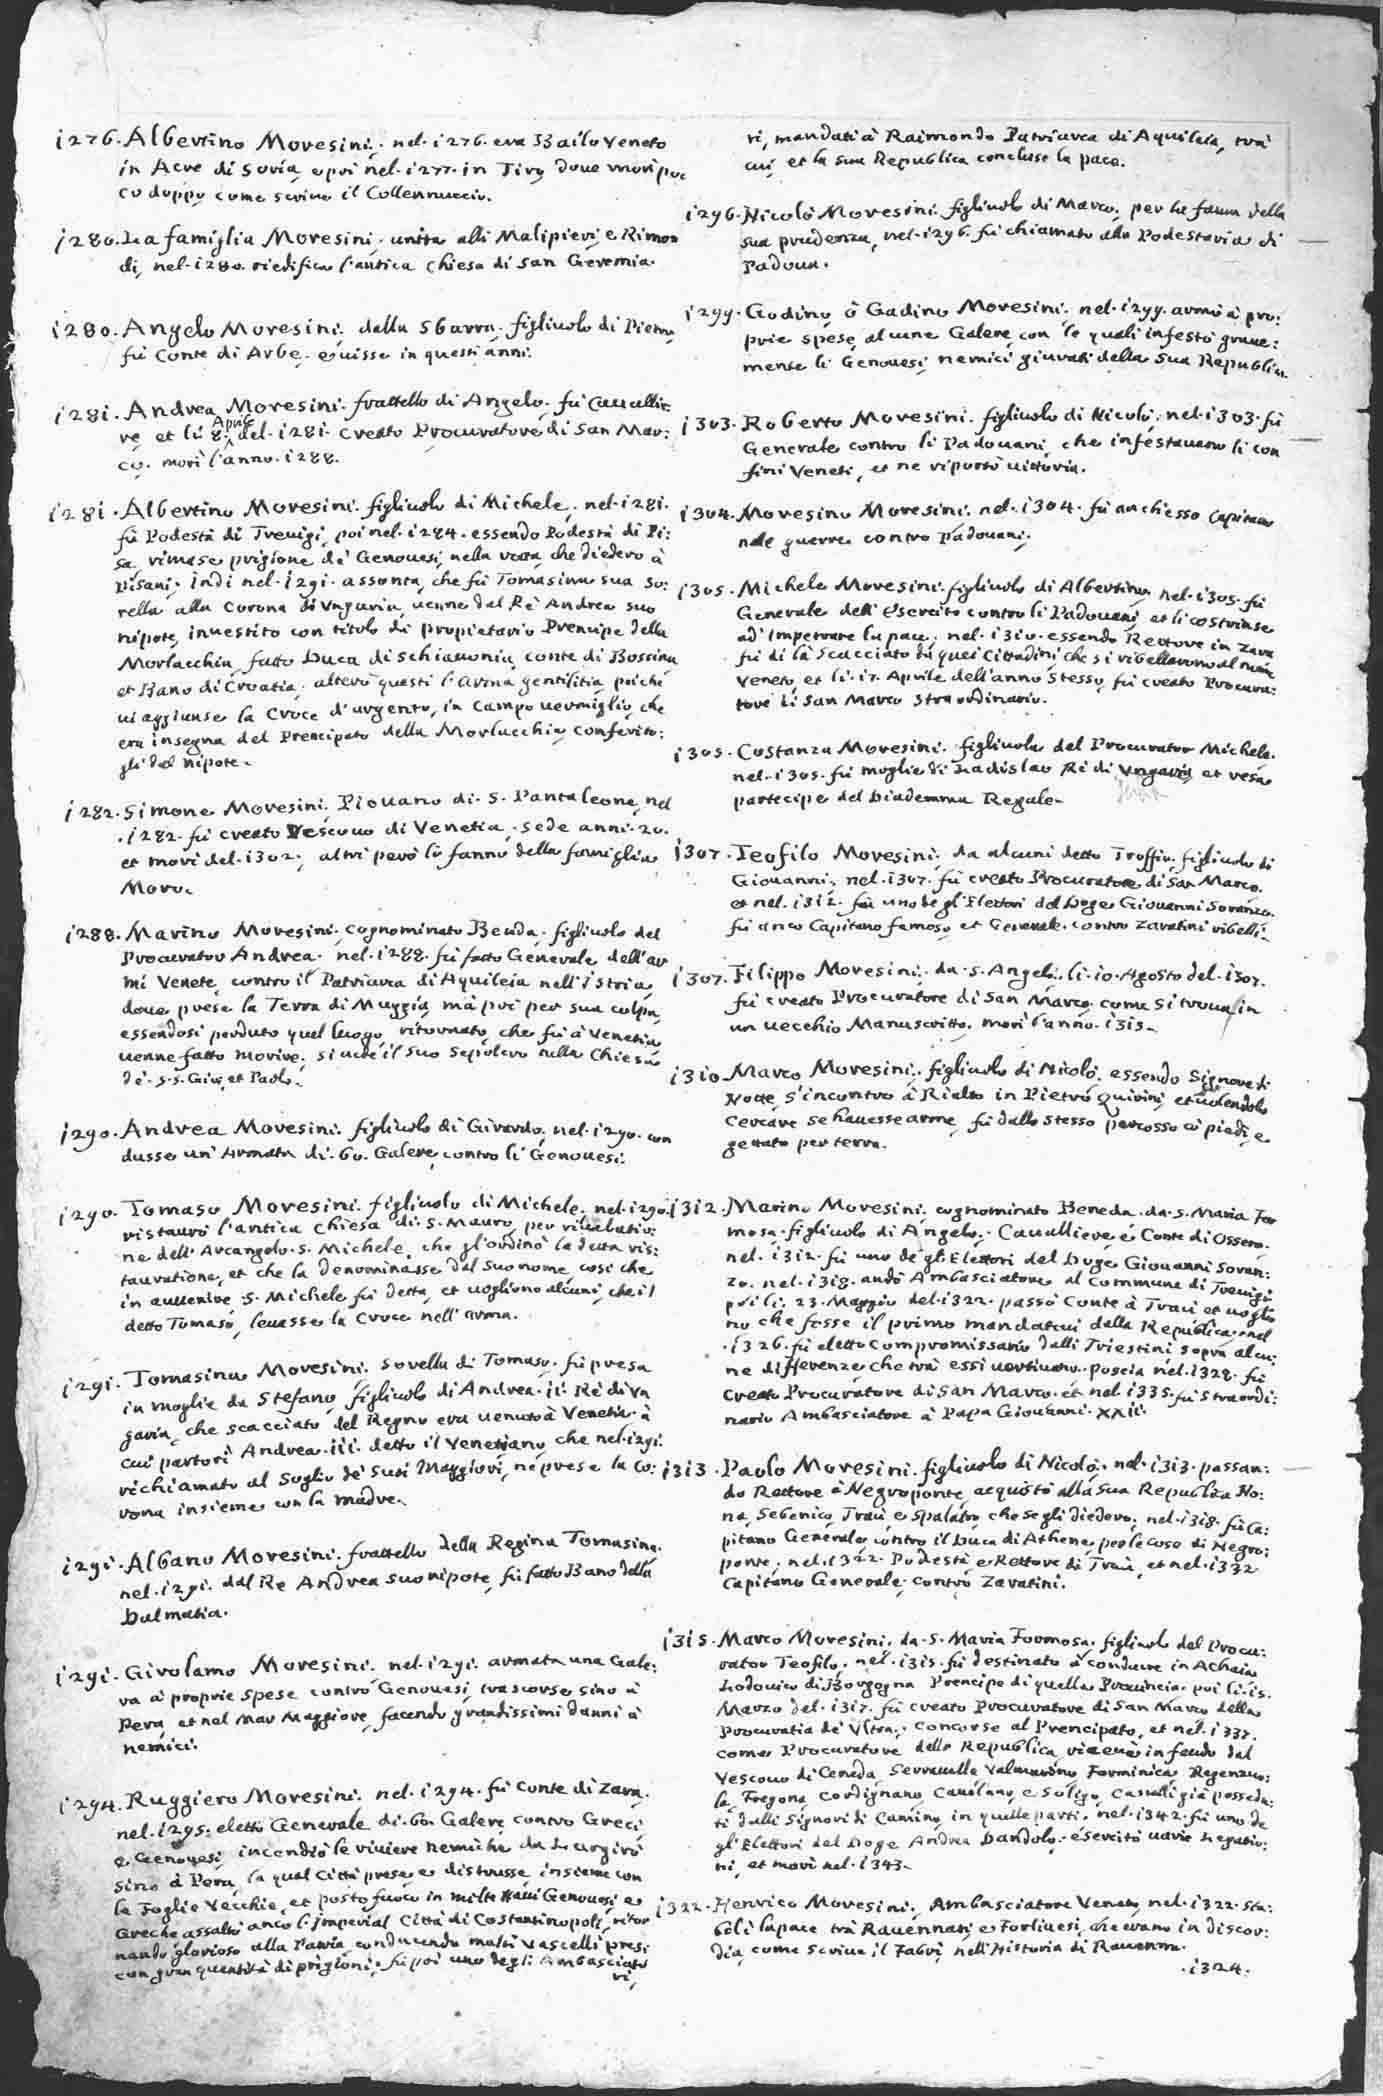 1276. Albertino Moresini. nel. 1276. era Bailo Veneto
in Acre di Soria, e poi nel. 1277. in Tiro, doue morì po:
co doppo, come scriue il Collennuccio.
1280. La famiglia Moresini, unita alli Malipieri, e Rimon
di, nel. 1280. riedificò l'antica Chiesa di San Geremia.
1280. Angelo Moresini. dalla Sbarra. figliuolo di Pietro,
fù Conte di Arbe, e uisse in questi anni.
1281. Andrea Moresini. frattello di Angelo, fù Cauallie:
re, et li 8. Aprile del. 1281. creato Procuratore di San Mar:
co. morì l'anno. 1288.
1281. Albertino Moresini. figliuolo di Michele, nel. 1281.
fù Podestà di Treuigi, poi nel. 1284. essendo Podestà di Pi:
sa, rimase prigione dè Genouesi, nella rotta, che diedero à
Pisani; indi nel. 1291. assonta, che fù Tomasina sua so:
rella alla Corona di Vngaria, uenne dal Rè Andrea suo
nipote, inuestito con titolo di propietario Prencipe della
Morlacchia, fatto Duca di Schiauonia, conte di Bossina
et Bano di Croatia; alterò questi l'Arma gentilitia, poiche
ui aggiunse la Croce d'argento, in Campo uermiglio, che
era insegna del Prencipato della Morlacchia, conferito:
gli dal nipote.
1282. Simone Moresini, Piouano di. S. Pantaleone, nel
. 1282. fù creato Vescouo di Venetia, sede anni. 20.
et morì del. 1302; altri però lo fanno della famiglia
Moro.
1288. Marino Moresini, cognominato Beuda. figliuolo del
Procurator Andrea. nel. 1288. fù fatto Generale dell'ar
mi Venete, contro il Patriarca di Aquileia nell'Istria,
doue prese la Terra di Muggia, mà poi per sua colpa,
essendosi perduto quel luogo, ritornato, che fù à Venetia
uenne fatto morire; si uede il suo sepolcro nella Chiesa
dè. S. S. Gio: et Paolo.
1290. Andrea Moresini. figliuolo di Girardo, nel. 1290. con
dusse un'Armata di. 60. Galere, contro li Genouesi.
1290. Tomaso Moresini. figliuolo di Michele, nel. 1290.
ristaurò l'antica Chiesa di. S. Mauro, per
ne dell'Arcangelo. S. Michele, che gl'ordinò la detta ris:
tauratione, et che la denominasse dal suo nome, così che
in auuenire. S. Michele fù detta, et uogliono alcuni, che il
detto Tomaso, leuasse la Croce nell'arma.
1291. Tomasina Moresini. sorella di Tomaso. fù presa
in moglie da Stefano, figliuolo di Andrea. ii. Rè di Vn
garia, che scacciato del Regno era uenuto à Venetia. à
cui partorì Andrea. iii. detto il Venetiano, che nel. 1291.
richiamato al Soglio dè suoi Maggiori, ne prese la Co:
rona insieme con la madre.
1291. Albano Moresini. frattello della Regina Tomasina.
nel. 1291. dal Rè Andrea suo nipote, fù fatto Bano della
Dalmatia.
1291. Girolamo Moresini. nel. 1291. armata una Gale:
ra à proprie spese contro Genouesi, trascorse sino à
Pera, et nel Mar Maggiore, facendo grandissimi danni à
nemici.
1294. Ruggiero Moresini. nel. 1294. fù Conte di Zara.
nel. 1295. eletto Generale di. 60. Galere contro Greci
e Genouesi, incendiò le riuiere nemiche da
sino à Pera, la qual Città prese, e distrusse, insieme con
le Foglie Vecchie, et posto fuoco in molte Naui Genouesi e
Greche assaltò anco l'Imperial Città di Costantinopoli, ritor
nando glorioso alla Patria conducendo molti Vascelli presi
con gran quantità di prigioni; fù poi uno degli Ambasciato
ri,
ri, mandati à Raimondo Patriarca di Aquileia, trà
cui, et la sua Republica concluse la pace.
1296. Nicolò Moresini. figliuolo di Marco, per la fama della
sua prudenza, nel. 1296. fù chiamato alla Podestaria di
Padoua.
1299. Godino, ò Gadino Moresini. nel. 1299. armò à pro:
prie spese, alcune Galere, con le quali infestò graue:
mente li Genouesi, nemici giurati della sua Republica.
1303. Roberto Moresini. figliuolo di Nicolò. nel. 1303. fù
Generale contro li Padouani, che infestauano li con
fini Veneti, et ne riportò uittoria.
1304. Moresino Moresini. nel. 1304. fù anch'esso Capitano
nele guerre contro Padouani.
1305. Michele Moresini. figliuolo di Albertino, nel. 1305. fù
Generale dell'Esercito contro li Padouani, et li costrinse
ad'Impetrare la pace. nel. 1310. essendo Rettore in Zara
fù di là Scacciato dà quei Cittadini, che si ribellarono al nome
Veneto, et li. 17. Aprile dell'anno stesso, fù creato Procura:
tore di San Marco Straordinario.
1305. Costanza Moresini. figliuola del Procurator Michele.
nel. 1305. fù moglie di Ladislao Rè di Vngaria, et resa
partecipe del Diademma Regale.
1307. Teofilo Moresini, da alcuni detto Troffio, figliuolo di
Giouanni, nel. 1307. fù creato Procuratore di San Marco.
et nel. 1312. fù uno de gl'Elettori del Doge Giouanni Soranzo.
fù anco Capitano famoso, et Generale contro Zaratini ribelli.
1307. Filippo Moresini. da. S. Angelo, li. 10. Agosto del. 1307.
fù creato Procuratore di San Marco, come si troua in
un uecchio Manuscritto. morì l'anno. 1315.
1310. Marco Moresini. figliuolo di Nicolò. essendo Signore di
Notte, s'incontrò à Rialto in Pietro Quirini, et uolendolo
cercare se hauesse arme, fù dallo stesso percosso cò piedi, e
gettato per terra.
1312. Marino Moresini. cognominato Beneda. da. S. Maria For
mosa. figliuolo di Angelo. Caualliere, e Conte di Ossero.
nel. 1312. fù uno dè gl'Elettori del Doge Giouanni Soran:
zo. nel. 1318. andò Ambasciatore al Commune di Treuigi
poi li. 23. Maggio del. 1322. passò Conte à Traù et uoglio
no che fosse il primo mandatoui dalla Republica. nel
. 1326. fù eletto compromissario dalli Triestini sopra alcu:
ne differenze, che trà essi uertiuano. poscia nel. 1328. fù
creato Procuratore di San Marco. et nel 1335. fù straordi:
nario Ambasciatore à Papa Giouanni. XXII.
1313. Paolo Moresini. figliuolo di Nicolò. nel. 1313. passan:
do Rettore à Negroponte, acquistò alla sua Republica No:
na, Sebenico, Traù e Spalato, che se gli diedero. nel. 1318. fù Ca:
pitano Generale contro il Duca di Athene, per le cose di Negro:
ponte; nel. 1322. Podestà, e Rettore di Traù, et nel. 1332
Capitano Generale contro Zaratini.
1315. Marco Moresini. da. S. Maria Formosa. figliuolo del Procu:
rator Teofilo. nel. 1315. fù destinato à condurre in Achaia
Lodouico di Borgogna Prencipe di quella Prouincia. poi li. 15.
Marzo del. 1317. fù creato Procuratore di San Marco della
Procuratia dè Vltra. Concorse al Prencipato, et nel. 1337.
come Procuratore della Republica, riceuè in feudo dal
Vescouo di Ceneda, Serraualle, Valmarino, Forminica, Regenzuo:
la, Fregona, Cordignano, Cauolano, e Soligo, Castelli già possedu:
ti dalli Signori di Camino, in quelle parti. nel. 1342. fù uno de
gl'Elettori del Doge Andrea Dandolo. esercitò uarie Legatio:
ni, et morì nel. 1343.
1322. Henrico Moresini, Ambasciatore Veneto, nel. 1322. sta:
bilì la pace trà Rauennati, e Forliuesi, che erano in discor:
dia, come scriue il Fabri nell'Historia di Rauenna.
. 1324.